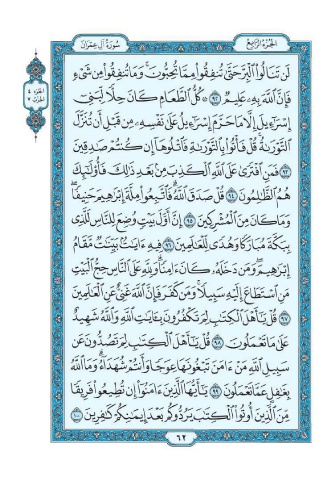 الجزء الرابع
سورة آل عمران
لَن تَنَالُوا۟ ٱلْبِرَّ حَتَّىٰ تُنفِقُوا۟ مِمَّا تُحِبُّونَ ۚ وَمَا تُنفِقُوا۟ مِن شَىْءٍ
فَإِنَّ ٱللَّهَ بِهِۦ عَلِيمٌ ٩٢ ۞ كُلُّ ٱلطَّعَامِ كَانَ حِلًّا لِّبَنِىٓ
إِسْرَٰٓءِيلَ إِلَّا مَا حَرَّمَ إِسْرَٰٓءِيلُ عَلَىٰ نَفْسِهِۦ مِن قَبْلِ أَن تُنَزَّلَ
ٱلتَّوْرَىٰةُ ۗ قُلْ فَأْتُوا۟ بِٱلتَّوْرَىٰةِ فَٱتْلُوهَآ إِن كُنتُمْ صَٰدِقِينَ
٩٣ فَمَنِ ٱفْتَرَىٰ عَلَى ٱللَّهِ ٱلْكَذِبَ مِنۢ بَعْدِ ذَٰلِكَ فَأُو۟لَٰٓئِكَ
هُمُ ٱلظَّٰلِمُونَ ٩٤ قُلْ صَدَقَ ٱللَّهُ ۗ فَٱتَّبِعُوا۟ مِلَّةَ إِبْرَٰهِيمَ حَنِيفًا
وَمَا كَانَ مِنَ ٱلْمُشْرِكِينَ ٩٥ إِنَّ أَوَّلَ بَيْتٍ وُضِعَ لِلنَّاسِ لَلَّذِى
بِبَكَّةَ مُبَارَكًا وَهُدًى لِّلْعَٰلَمِينَ ٩٦ فِيهِ ءَايَٰتٌۢ بَيِّنَٰتٌ مَّقَامُ
إِبْرَٰهِيمَ ۖ وَمَن دَخَلَهُۥ كَانَ ءَامِنًا ۗ وَلِلَّهِ عَلَى ٱلنَّاسِ حِجُّ ٱلْبَيْتِ
مَنِ ٱسْتَطَاعَ إِلَيْهِ سَبِيلًا ۚ وَمَن كَفَرَ فَإِنَّ ٱللَّهَ غَنِىٌّ عَنِ ٱلْعَٰلَمِينَ
٩٧ قُلْ يَٰٓأَهْلَ ٱلْكِتَٰبِ لِمَ تَكْفُرُونَ بِـَٔايَٰتِ ٱللَّهِ وَٱللَّهُ شَهِيدٌ
عَلَىٰ مَا تَعْمَلُونَ ٩٨ قُلْ يَٰٓأَهْلَ ٱلْكِتَٰبِ لِمَ تَصُدُّونَ عَن
سَبِيلِ ٱللَّهِ مَنْ ءَامَنَ تَبْغُونَهَا عِوَجًا وَأَنتُمْ شُهَدَآءُ ۗ وَمَا ٱللَّهُ
بِغَٰفِلٍ عَمَّا تَعْمَلُونَ ٩٩ يَٰٓأَيُّهَا ٱلَّذِينَ ءَامَنُوٓا۟ إِن تُطِيعُوا۟ فَرِيقًا
مِّنَ ٱلَّذِينَ أُوتُوا۟ ٱلْكِتَٰبَ يَرُدُّوكُم بَعْدَ إِيمَٰنِكُمْ كَٰفِرِينَ ١٠٠
٦٢